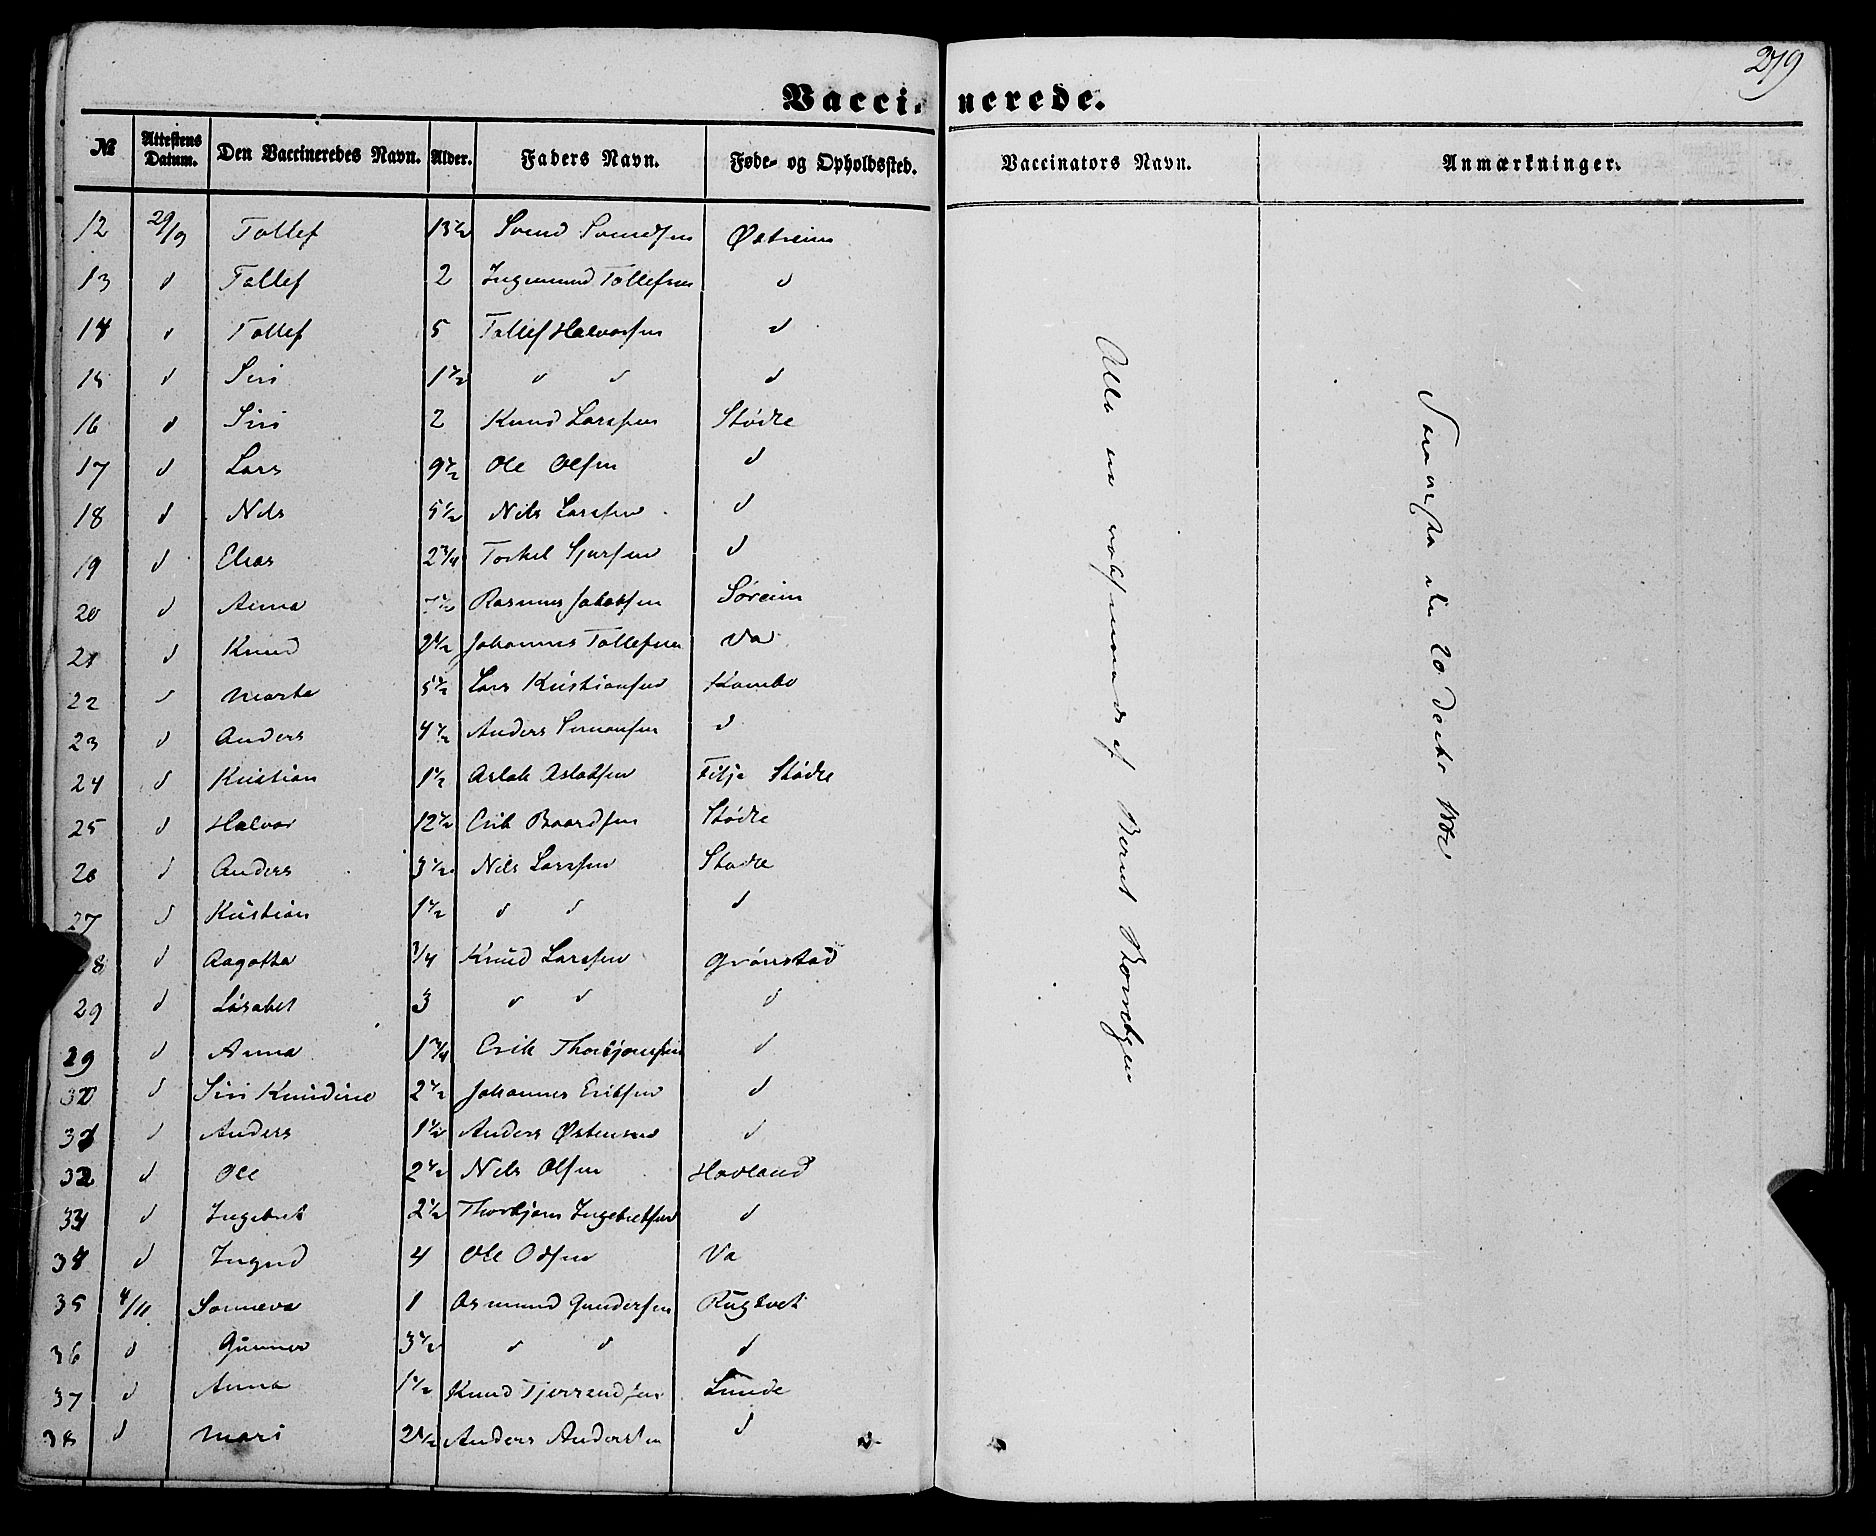 279
Vaccinerede.
№ Attestens Datum. Den Vaccineredes Navn. Alder. Faders Navn. Føde- og Opholdssted. Vaccinators Navn. Anmærkninger.
12 29/9 Tollef 13 1/2 Svend Svendsen Østreim
13 d Tollef 2 Ingemund Tollefsen d
14 d Tollef 5 Tollef Halvorsen d
15 d Siri 1 1/2 d d d
16 d Siri 2 Knud Larssen Stødle
17 d Lars 9 1/2 Ole Olsen d
18 d Nils 5 1/2 Nils Larssen d
19 d Elias 2 3/4 Torkel Sjursen d
20 d Anna 7 1/2 Rasmus Jakobsen Søreim
21 d Knud 9 1/2 Johannes Tollefsen Va
22 d Marta 5 1/2 Lars Kristiansen Kambo
23 d Anders 4 1/2 Anders Simonsen d
24 d Kristian 1 1/2 Aslak Aslaksen Filje Stødle
25 d Halvor 12 1/2 Erik Baardsen Stødle
26 d Anders 3 1/2 Nils Larssen Stødle
27 d Kristian 1 1/2 d d d
28 d Aagotha 3/4 Knud Larssen Grönstad
29 d Lisabet 3 d d d
29 d Anna 1 3/4 Erik Thorbjørnsen d
30 d Siri Knudine 2 1/2 Johannes Eriksen d
31 d Anders 1 1/2 Anders Østensen d
32 d Ole 2 1/2 Nils Olsen Havland
33 d Ingebret 2 1/2 Thorbjørn Ingebretsen d
34 d Ingrid 4 Ole Odsen Va
35 4/11 Sonneva 1 Asmund Gundersen Rugtvet
36 d Gunner 3 1/2 d d d
37 d Anna 1 1/2 Knud Tjerrandsen Lunde
38 d Mari 2 1/2 Anders Andersen d
Alle ere af Bernt
den 20 Decbr